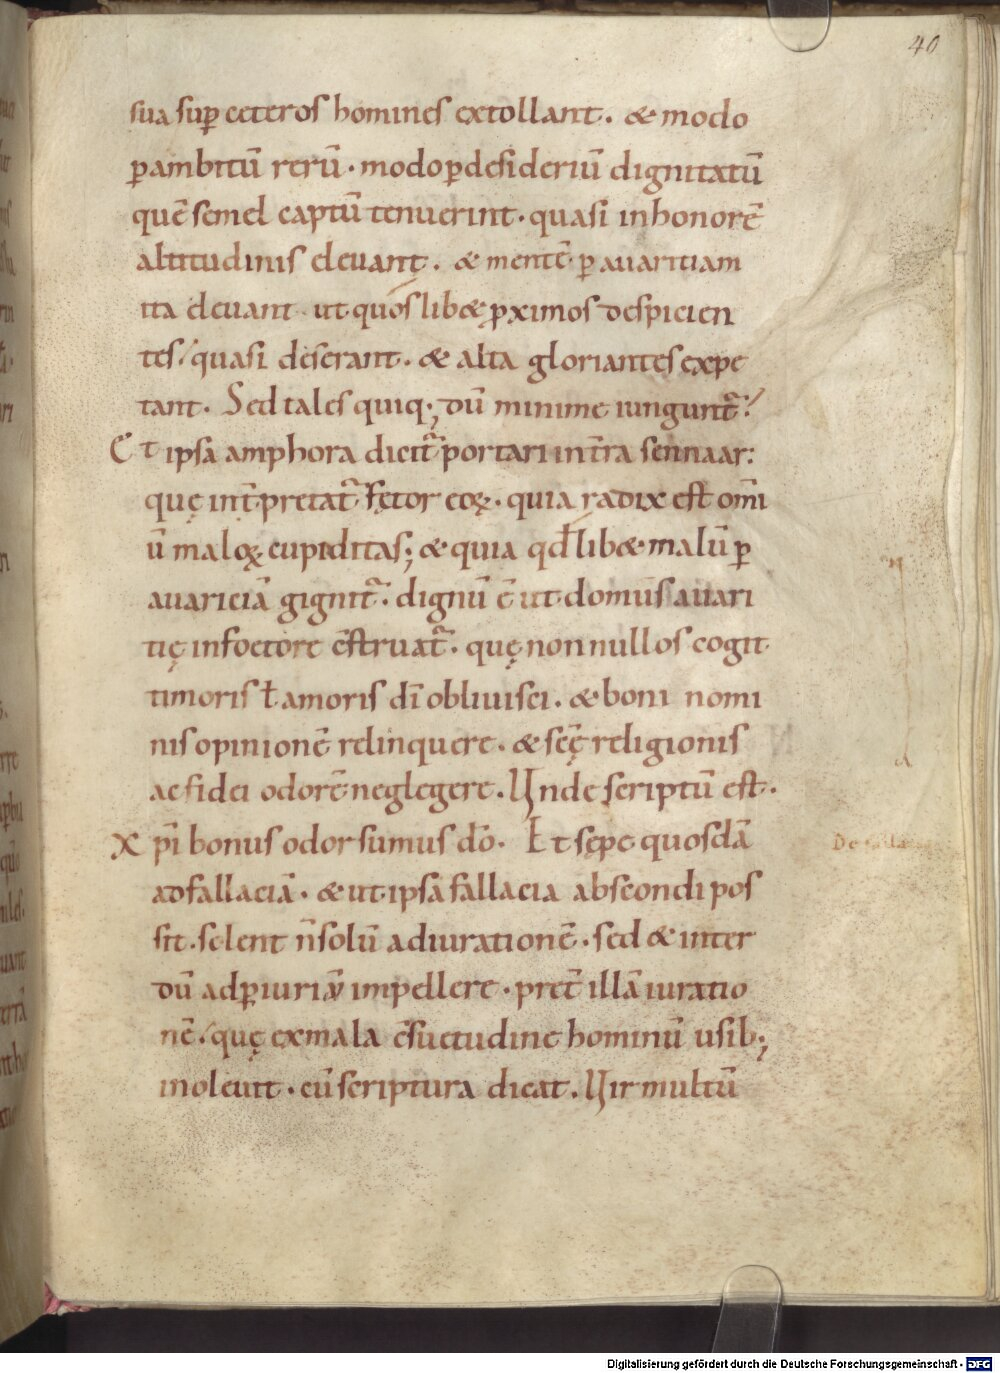 40
sua sup̄ ceteros homines extollant. & modo
p̄ambitū rerū. modo p̄desideriū dignitatū
quē semel captū tenuerint. quasi inhonorē
altitudinis eleuant. & mentē p̄ auaritiam
ita eleuant ut quoslib& p̄ximos despicien
tes. quasi deserant. & alta gloriantes expe
tant. Sed tales quiq; dū minime iungunt̄?
Et ipsa amphora dicit̄ portari int̄ra sennaar:
quę int̄pretat̄ fętor eoꝝ. quia radix est om̄i
ū maloꝝ cupiditas; & quia qd̄lib& malū p̄
auariciā gignit̄. dignū ē ut domus auari
tię infoetore c̄struat̄. quę non nullos cogit
timoris ł amoris dī obliuisci. & boni nomi
nis opinionē relinquere. & sc̄ę religionis
ac fidei odorē neglegere. Unde scriptū est.
Xp̄i bonus odor sumus dō. Et sępe quosdā
ad fallaciā. & ut ipsa fallacia abscondi pos
sit. solent n̄ solū adiurationē. sed & inter
dū adp̄iuriū impellere. pret̄ illā iuratio
nē. quę exmala c̄suetudine hominū usib;
inoleuit. cū scriptura dicat. Uir multū
Digitalisierung gefördert durch die Deutsche Forschungsgemeinschaft - DFG